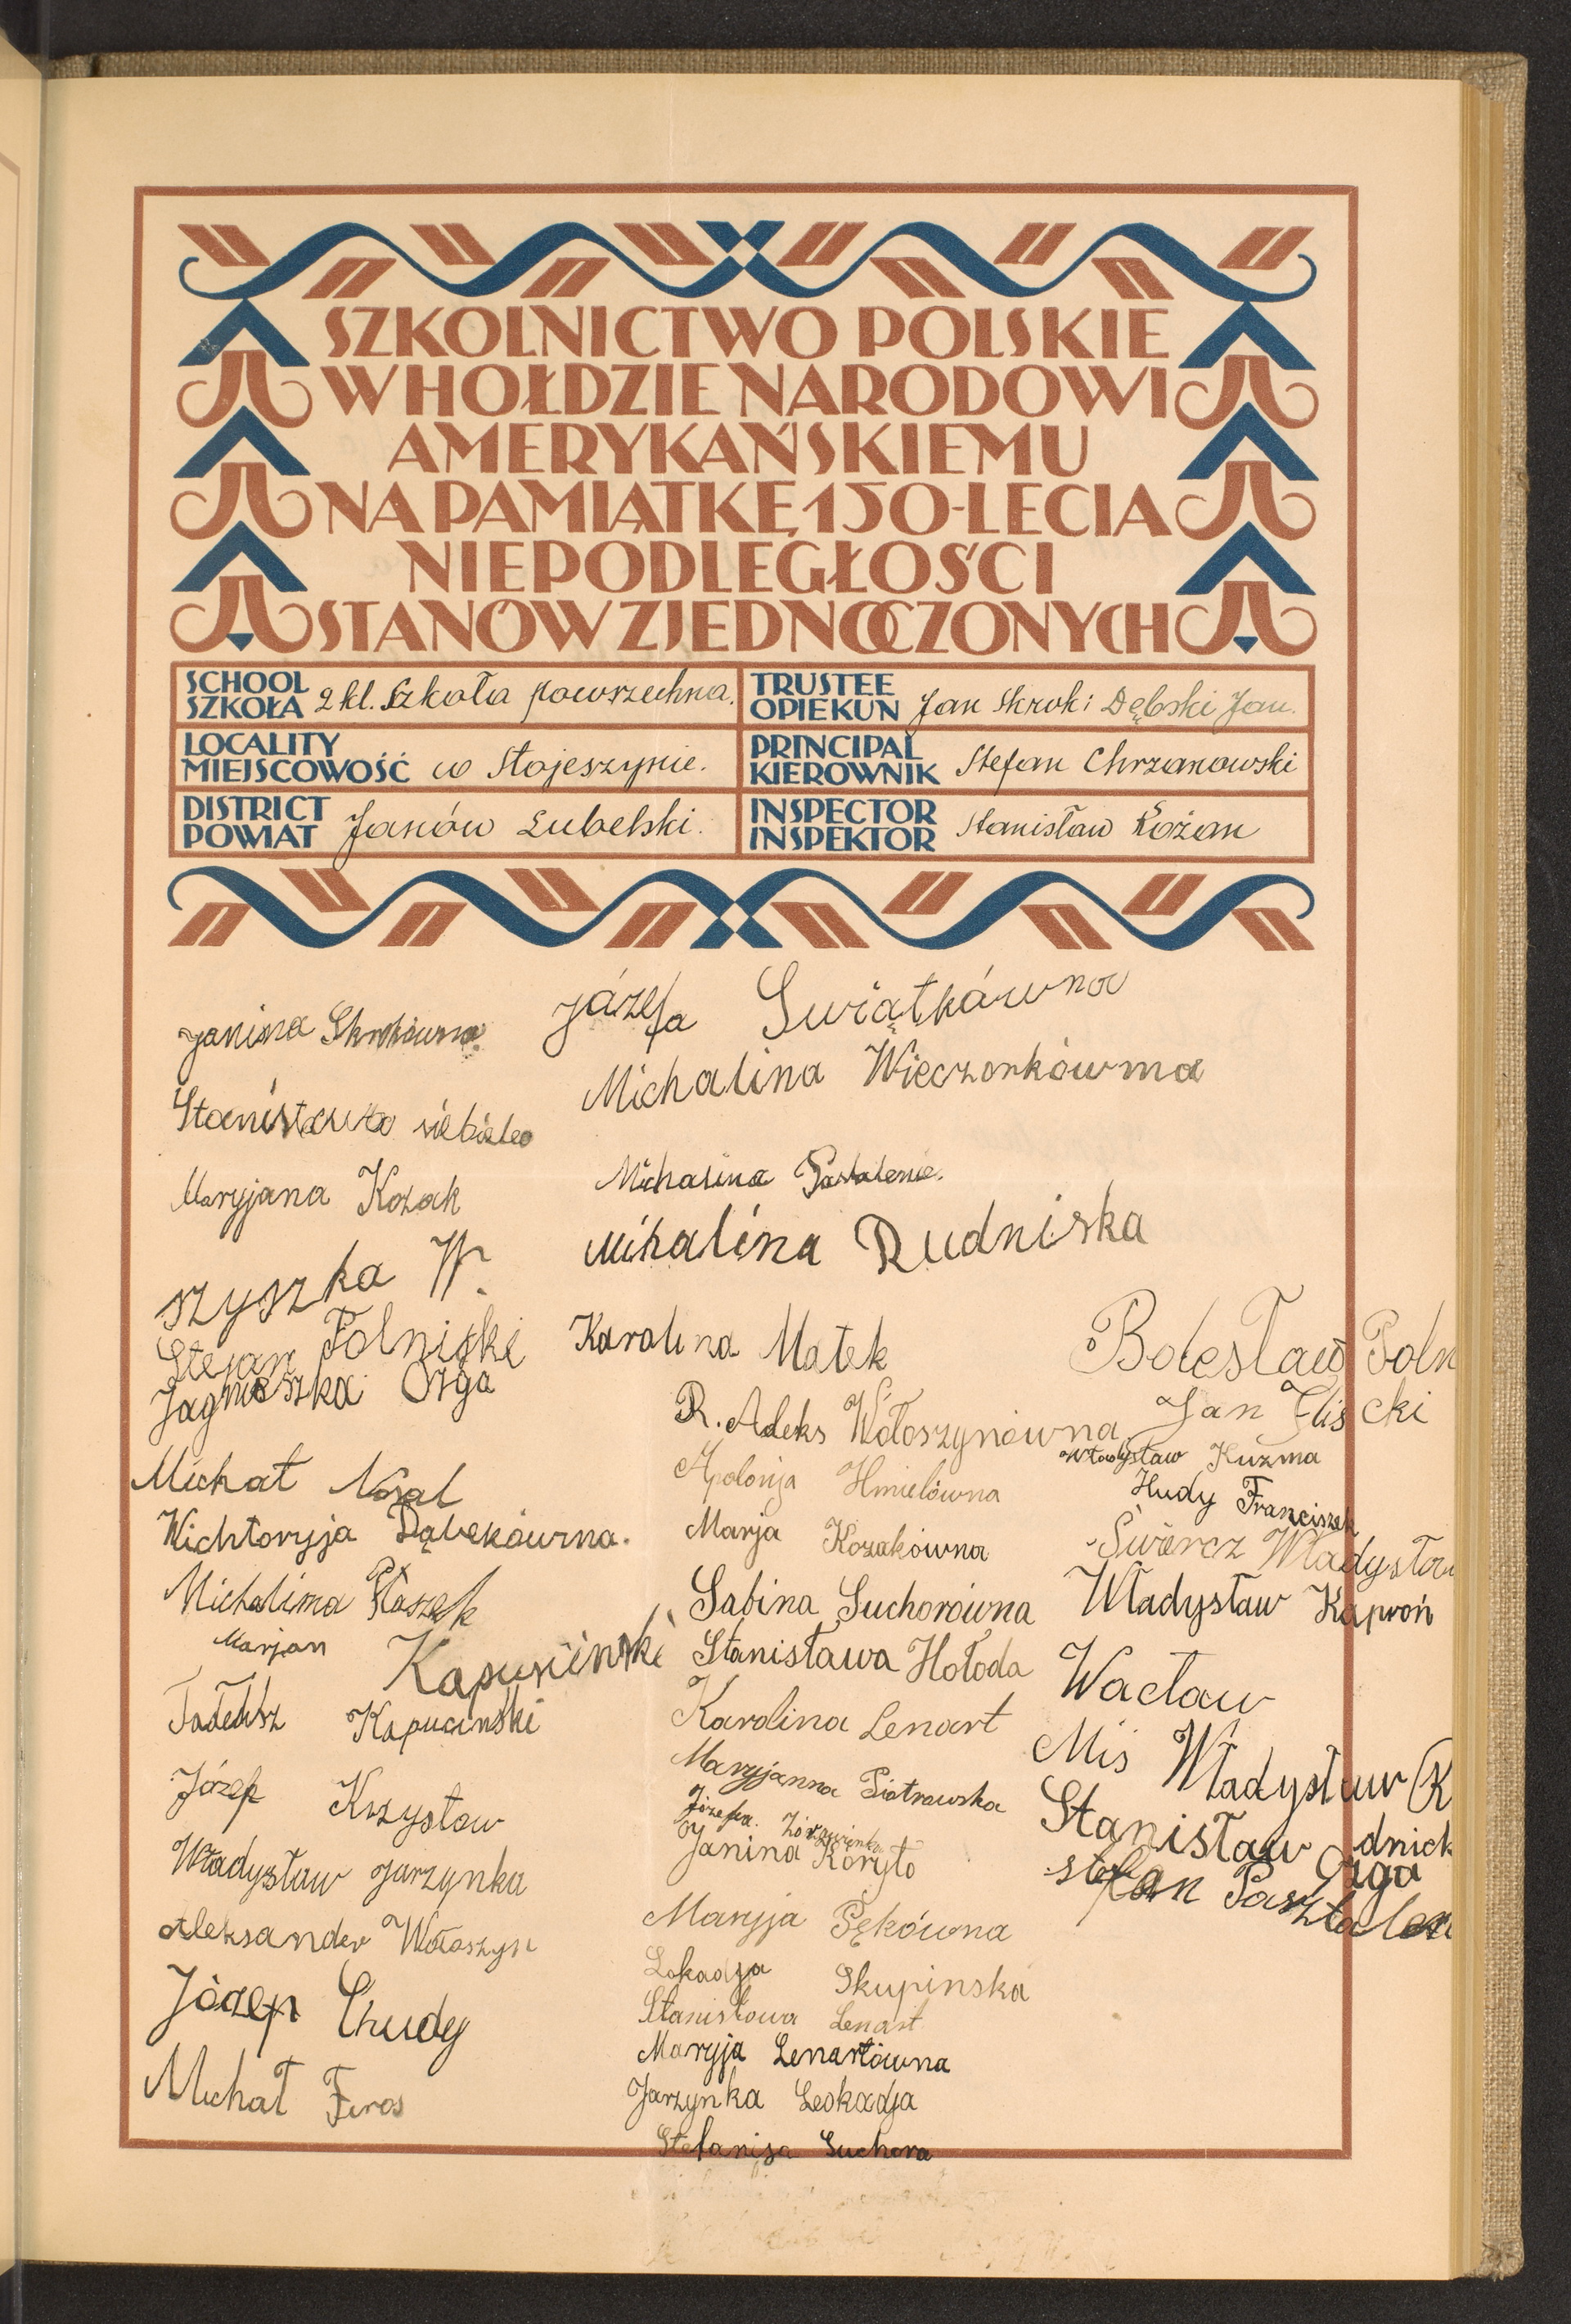 SZKOLNICTWO POLSKIE
W HOŁDZIE NARODOWI
AMERYKAŃSKIEMU
NA PAMIĄTKĘ 150-LECIA
NIEPODLEGŁOŚCI
STANÓW ZJEDNOCZONYCH
SCHOOL
SZKOŁA 2 kl. Szkoła powszechna.
TRUSTEE
OPIEKUN Jan Skrok i Dębski Jan.
LOCALITY
MIEJSCOWOŚĆ w Stojeszynie.
PRINCIPAL
KIEROWNIK Stefan Chrzanowski
DISTRICT
POWIAT Janów Lubelski.
INSPECTOR
INSPEKTOR Stanisław Łożan
Janina Skrokówna
Stanisława
Maryjana Kozak
szyszka W.
Stefan Polniski
Jagnieszka Ozga
Michał Nosal
Wichtoryja Dąbekówna.
Michalina Ptaszek
Marjan Kapusiński
Tadeusz Kapuciński
Józef Krzysztow
Władysław Jarzynka
Aleksander Wołoszyn
Józep Chudy
Michał Firos
Józefa Swiątkówna
Michalina Wieczorkówma
Michalina
Mihalina Rudniska
Karolina Małek
R. Aleks Wołoszynówna
Apolonja Hmielówna
Marja Kozakówna
Sabina Suchorówna
Stanisława Hołoda
Karolina Lenart
Maryjanna Piotrowska
Józefa
Janina Koryto
Maryja Pękówna
Lokadja Skupinska
Stanisława Lenart
Maryja Lenartówna
Jarzynka Leokadja
Stefanija Suchora
Bolesław Poln
Jan Flis cki
Władysław Kuzma
Hudy Franciszek
Swiercz Władysław
Władysław Kaproń
Wacław
Mis Władysław R
Stanisław dnick
Ozga
stefan Pasztalen